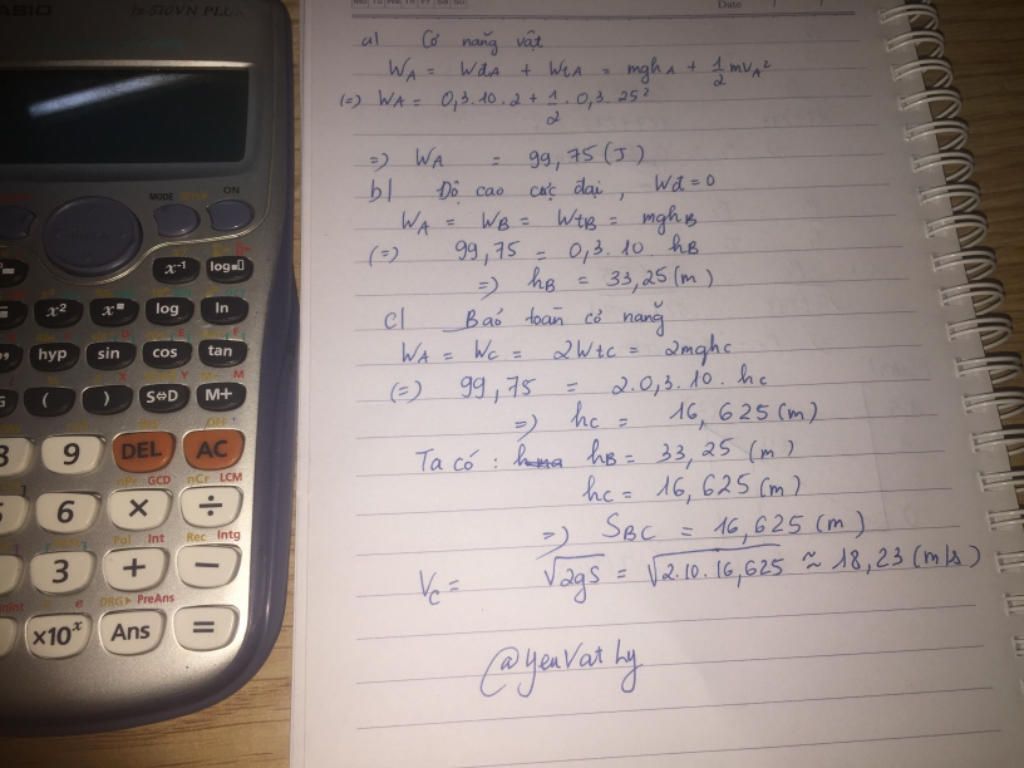 CASIO fx-570VN PLUS
MODE SETUP ON
x⁻¹ log
x² x log ln
hyp sin cos tan
( ) S⇔D M+
9 DEL AC
nPr GCD nCr LCM
6 × ÷
Pol Int Rec Intg
3 + −
DRG▸ PreAns
×10ˣ Ans =
Mo Tu We Th Fr Sa Su
Date / /
a) Cơ năng vật
W_A = Wđ_A + Wt_A = mgh_A + 1/2 mv_A²
(=) W_A = 0,3.10.2 + 1/2 . 0,3.25²
=) W_A = 99,75 (J)
b) Độ cao cực đại, Wđ = 0
W_A = W_B = Wt_B = mgh_B
(=) 99,75 = 0,3.10 h_B
=) h_B = 33,25 (m)
c) Bảo toàn cơ năng
W_A = W_C = 2Wt_C = 2mgh_C
(=) 99,75 = 2.0,3.10.h_C
=) h_C = 16,625 (m)
Ta có : h_B = 33,25 (m)
h_C = 16,625 (m)
=) S_BC = 16,625 (m)
V_C = √2gS = √2.10.16,625 ≈ 18,23 (m/s)
@yeuVatLy